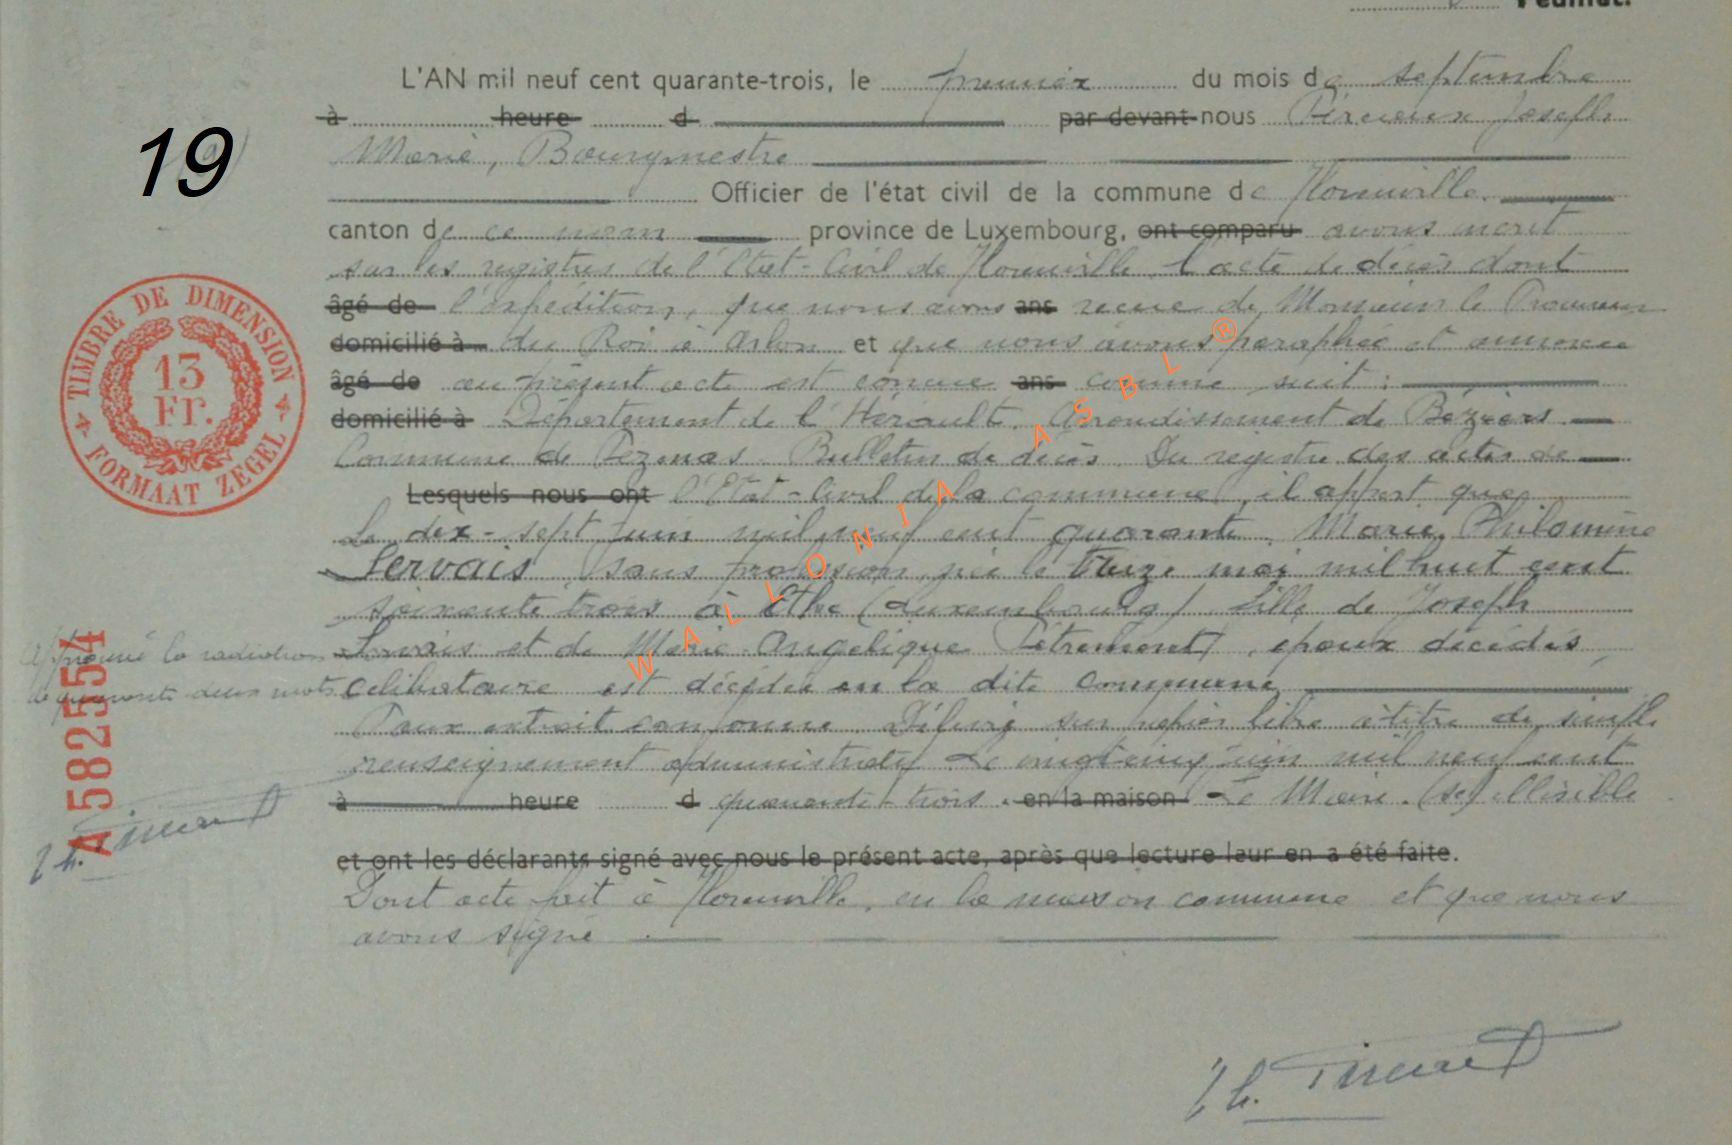 Feuillet.
L'AN mil neuf cent quarante-trois, le premier du mois de septembre
à heure d par devant nous Joseph
19
Marie, Bourgmestre
Officier de l'état civil de la commune de Florenville.
canton de ce nom province de Luxembourg, ont comparu avons inscrit
sur les registres de l'Etat-Civil de Florenville l'acte de décès dont
âgé de l'expédition, que nous avons ans recue de Monsieur le Procureur
domicilié à du Roi à Arlon et que nous avons paraphée et annexée
âgé de au présent acte est concue ans comme suit :
domicilié à Département de l'Hérault. Arrondissement de Béziers.
Commune de Pezenas. Bulletin de décès. Du registre des actes de
Lesquels nous ont l'Etat-Civil de la commune, il appert que
Le dix-sept juin mil neuf cent quarante. Marie, Philomène
Servais, sans profession, née le treize mai mil huit cent
soixante trois à Ethe (Luxembourg) fille de Joseph
Servais et de Marie Angélique Pétrement, epoux décédés,
célibataire est décédée en la dite commune
Pour extrait conforme. Délivré sur papier libre à titre de simple
renseignement administratif Le vingt cinq juin mil neuf cent
à heure d quarante-trois. en la maison Le Maire. (sé) illisible
et ont les déclarants signé avec nous le présent acte, après que lecture leur en a été faite.
Dont acte fait à Florenville, en la maison commune et que nous
avons signé
Approuvé la radiation
de quarante deux mots
TIMBRE DE DIMENSION
13
Fr.
FORMAAT ZEGEL
A582554
WALLONIA ASBL ®